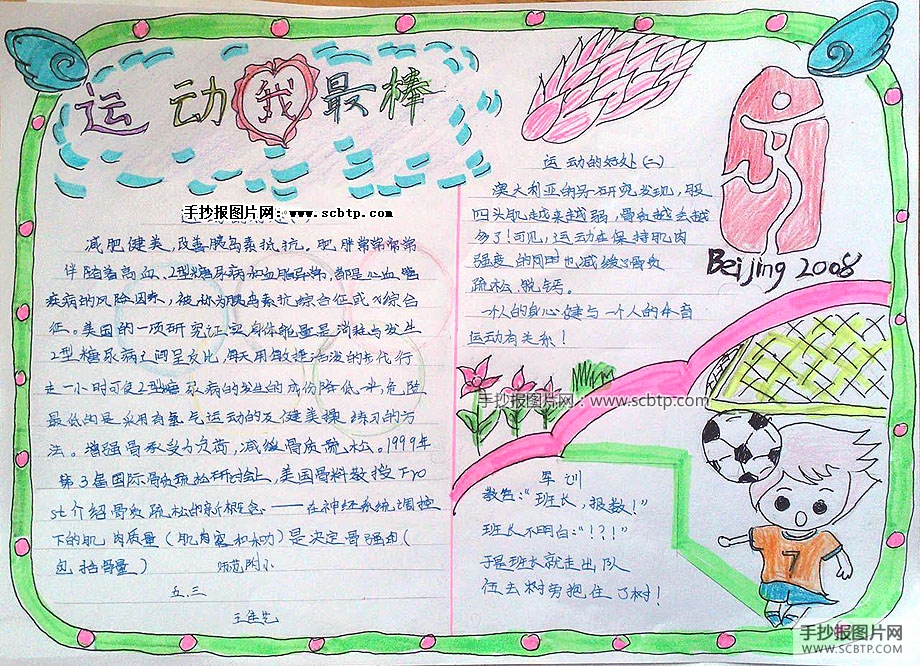 运动我最棒
手抄报图片网:www.scbtp.com
减肥健美,改善胰岛素抵抗。肥胖常常常常
伴随着高血、2型糖尿病和血脂异常,都是心血管
疾病的风险因素,被称为胰岛素抗综合征或X综合
征。美国的一项研究证实身体能量是消耗与发生
2型糖尿病之间呈反比,每天用敏捷活泼的步代行
走一小时可使2型糖尿病的发生的危险降低一半,危险
最低的是采用有氧气运动的及健美操练习的方
法。增强骨承受力负荷,减缓骨质疏松。1999年
第3届国际骨质疏松研讨会上,美国骨科教授Fro
st介绍骨质疏松的新概念——在神经系统调控
下的肌肉质量(肌肉容和水功)是决定骨强由(
包括骨量)
师范附小
五.三
运动的好处(二)
澳大利亚的另一研究发现,股
四头肌越来越弱,骨质越去越
多了!可见,运动在保持肌肉
强度的同时也减缓了骨质
疏松、脱钙。
一个人的身心健与一个人的体育
运动有关系!
Beijing 2008
手抄报图片网:www.scbtp.com
军训
教官:“班长,报数!”
班长不明白:“!?!”
于是班长就走出队
伍去树旁抱住了树!
7
手抄报图片网
WWW.SCBTP.COM